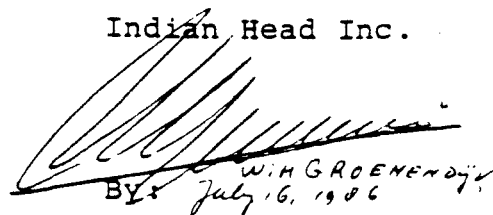 Indian Head Inc.
By: W.H GROENENDijk
July 16, 1986